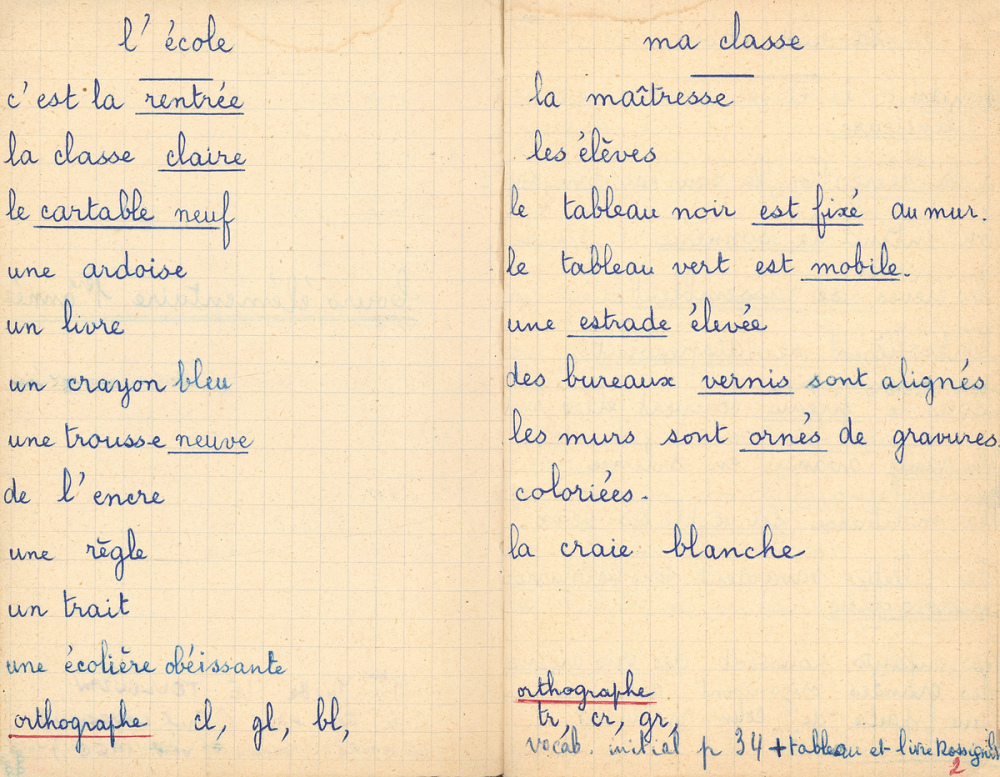 l'école
c'est la rentrée
la classe claire
le cartable neuf
une ardoise
un livre
un crayon bleu
une trousse neuve
de l'encre
une règle
un trait
une écolière obéissante
orthographe cl, gl, bl,
ma classe
la maîtresse
les élèves
le tableau noir est fixé au mur.
le tableau vert est mobile.
une estrade élevée
des bureaux vernis sont alignés
les murs sont ornés de gravures
coloriées.
la craie blanche
orthographe
tr, cr, gr,
vocab. initial p 34 + tableau et livre Rossignol
2